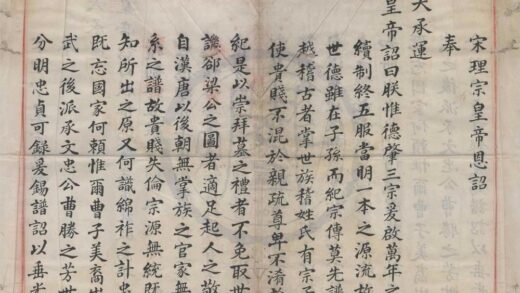 宋理宗皇帝恩詔
奉
天承運
皇帝詔曰朕惟德肇三宗爰啟萬年之
續制終五服當明一本之源流故
世德雖在子孫而紀宗傳莫先譜
越稽古者掌世族稽姓氏有宗子
使貴賤不混於親疏尊卑不淆於
紀是以崇拜墓之禮者不免取世
譏郤梁公之圖者適足起人之敬
自漢唐以後朝無掌族之官家無
系之譜故貴賤失倫宗源無統既
知所出之原又何識綿祚之計忠
既忘國家何賴惟爾曹子美裔出
武之後派承文忠公曹勝之芳世
分明忠貞可錄爰錫譜詔以垂光